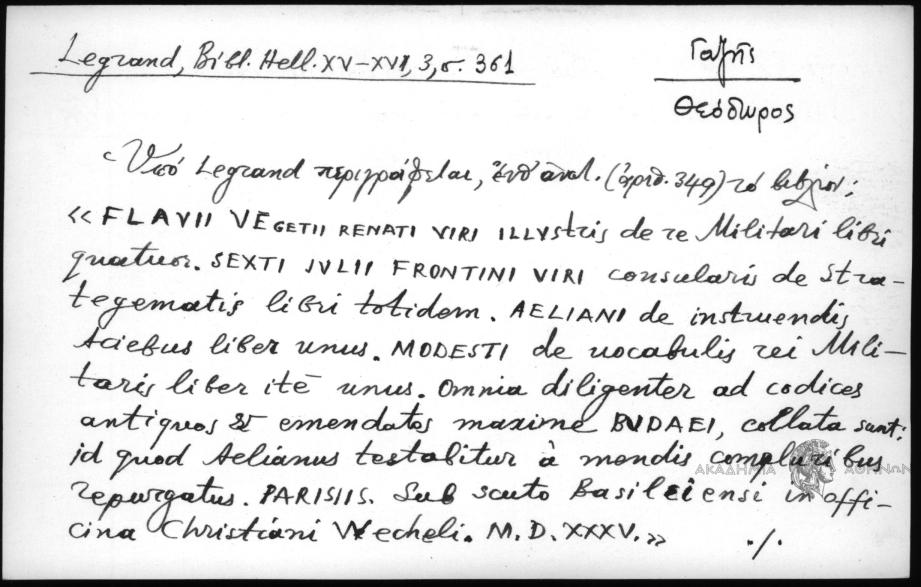 Legrand, Bibl. Hell. XV-XVI, 3, σ. 361
Γαζῆς
Θεόδωρος
Ὑπό Legrand περιγράφεται, ἐνθ' ἀνωτ. (ἀριθ. 349) τό βιβλίον:
«FLAVII VEGETII RENATI VIRI ILLVstris de re Militari libri
quatuor. SEXTI JVLII FRONTINI VIRI consularis de Stra-
tegematis libri totidem. AELIANI de instruendis
Aciebus liber unus. MODESTI de uocabulis rei Mili-
taris liber itē unus. Omnia diligenter ad codices
antiquos & emendatos maxime BVDAEI, collata sunt;
id quod Aelianus testabitur à mendis compluribus
repurgatus. PARISIIS. Sub scuto Basileiensi in offi-
cina Christiani Wecheli. M.D.XXXV.» ./.
ΑΚΑΔΗΜΙΑ ΑΘΗΝΩΝ